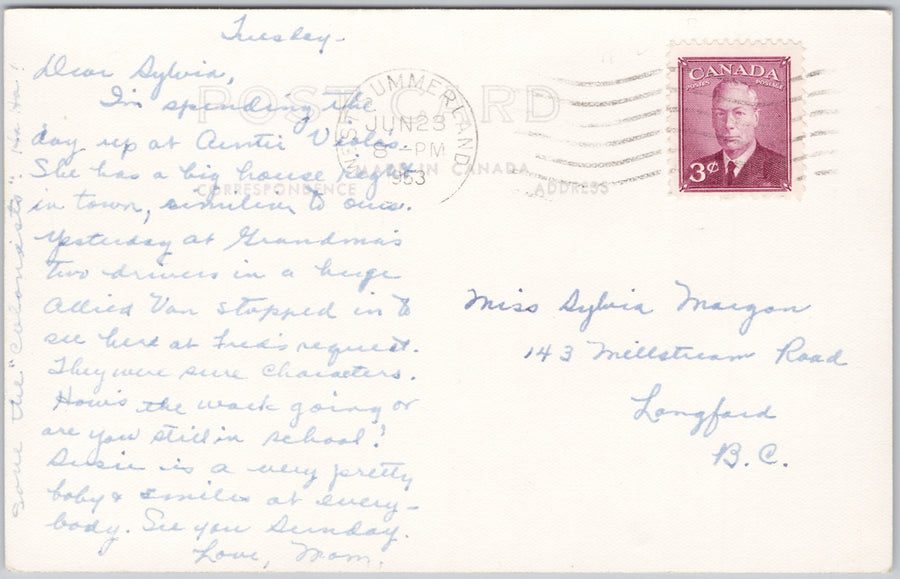 Tuesday -
Dear Sylvia,
I'm spending the
day up at Auntie Violas.
She has a big house right
in town, similiar to ours.
Yesterday at Grandma's
two drivers in a huge
Allied Van stopped in to
see her at Fred's request.
They were sure characters.
How's the work going or
are you still in school?
Susie is a very pretty
baby & smiles at every-
body. See you Sunday.
Love, Mom.
the "Colonists" Ha Ha!
POST CARD
MADE IN CANADA
CORRESPONDENCE
ADDRESS
WEST SUMMERLAND
JUN 23
8 - PM
1953
CANADA
POSTES POSTAGE
3¢
Miss Sylvia
143 Millstream Road
Langford
B.C.